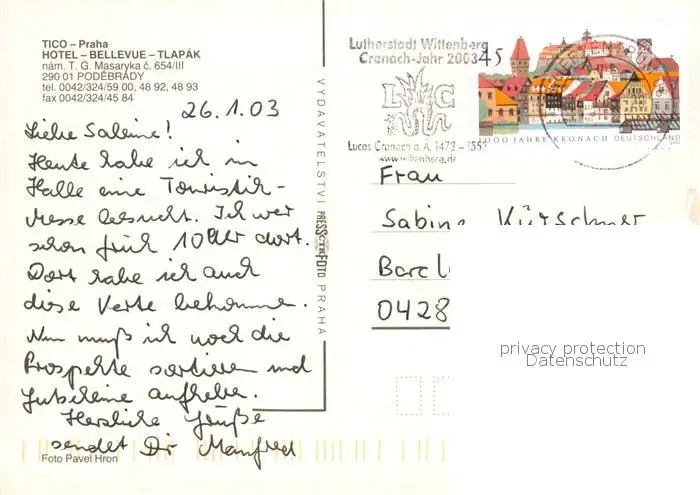 TICO – Praha
HOTEL – BELLEVUE – TLAPÁK
nám. T. G. Masaryka č. 654/III
290 01 PODĚBRADY
tel. 0042/324/59 00, 48 92, 48 93
fax 0042/324/45 84
26.1.03
Liebe Sabine!
Heute habe ich in
Halle eine Touristik-
Messe besucht. Ich war
schon früh 10 Uhr dort.
Dort habe ich auch
diese Karte bekommen.
Nun muß ich noch die
Prospekte sortieren und
Gutscheine aufheben.
Herzliche Grüße
sendet Dir Manfred
Foto Pavel Hron
VYDAVATELSTVÍ PRESSFOTO PRAHA
Lutherstadt Wittenberg
Cranach-Jahr 2003
L C
Lucas Cranach d.Ä. 1472 – 1553
www.wittenberg.de
45
1000 JAHRE KRONACH DEUTSCHLAND
Frau
Sabine Kürschner
Barcl
0428
privacy protection
Datenschutz